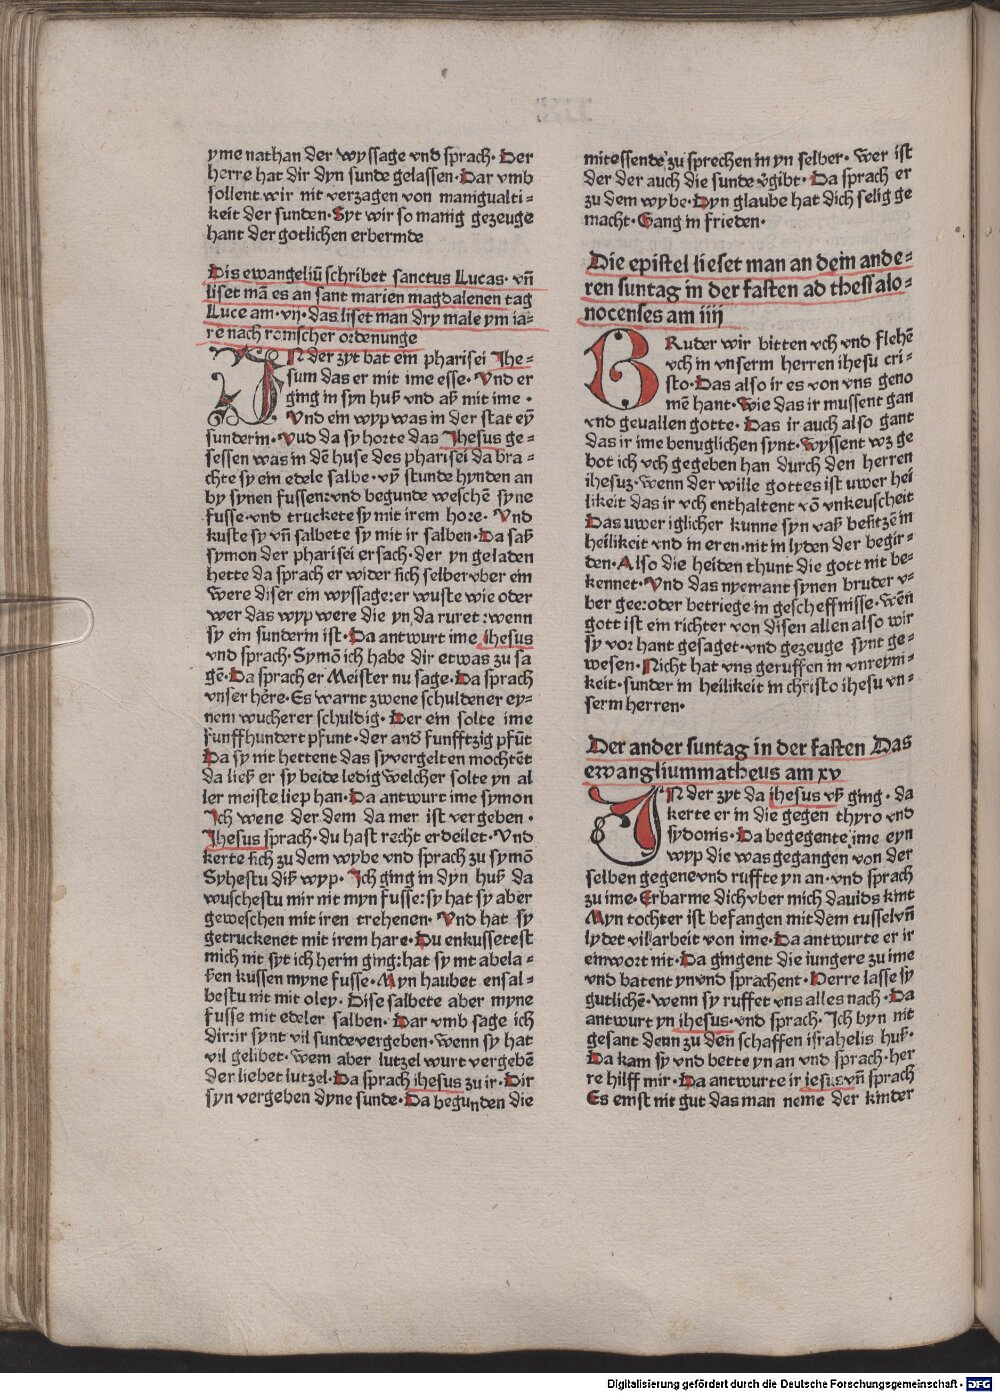 yme nathan der wyssage vnd sprach· Der
herre hat dir dyn sunde gelassen· Dar vmb
sollent wir nit verzagen von manigualti-
keit der sunden· Syt wir so manig gezeuge
hant der gotlichen erbermde
Dis ewangeliũ schribet sanctus Lucas· vñ
liset mã es an sant marien magdalenen tag
Luce am·vij·das liset man dry male ym ia-
re nach romscher ordenunge
IN der zyt bat ein pharisei Jhe-
sum das er mit ime esse· Vnd er
ging in syn huß vnd aß mit ime·
Vnd ein wyp was in der stat eỹ
sunderin· Vnd da sy horte das Jhesus ge-
sessen was in dẽ huse des pharisei da bra-
chte sy ein edele salbe· vỹ stunde hynden an
by synen fussen:vnd begunde weschẽ syne
fusse·vnd truckete sy mit irem hore· Vnd
kuste sy vñ salbete sy mit ir salben· Da saß
symon der pharisei er sach· der yn geladen
hette da sprach er wider sich selber vber ein
Were diser ein wyssage:er wuste wie oder
wer das wyp were die yn da ruret:wenn
sy ein sunderin ist· Da antwurt ime ihesus
vnd sprach· Symõ ich habe dir etwas zu sa
gẽ· Da sprach er Meister nu sage· Da sprach
vnser hẽre· Es warnt zwene schuldener ey-
nem wucherer schuldig· Der ein solte ime
funffhundert pfunt·der and funfftzig pfũt
Da sy nit hettent das sy vergelten mochtẽt
da ließ er sy beide ledig welcher solte yn al
ler meiste liep han· Da antwurt ime symon
Ich wene der dem da mer ist vergeben·
Jhesus sprach·du hast recht erdeilet· Vnd
kerte sich zu dem wybe vnd sprach zu symõ
Syhestu diß wyp· Ich ging in dyn huß da
wuschestu mir nit myn fusse:sy hat sy aber
geweschen mit iren trehenen· Vnd hat sy
getruckenet mit irem hare· Du enkussetest
mich nit syt ich herin ging:hat sy nit abela-
ßen kussen myne fusse· Myn haubet ensal-
bestu nit mit oley· Dise salbete aber myne
fusse mit edeler salben· Dar vmb sage ich
dir:ir synt vil sunde vergeben· wenn sy hat
vil gelibet· wem aber lutzel wurt vergebẽ
der liebet lutzel· Da sprach ihesus zu ir· Dir
syn vergeben dyne sunde· Da begunden die
mitessende zu sprechen in yn selber· wer ist
der der auch die sunde v̈gibt· Da sprach er
zu dem wybe· Dyn glaube hat dich selig ge
macht· Gang in frieden·
Die epistel lieset man an dem ande-
ren suntag in der fasten ad thessalo-
nocenses am iiij
BRuder wir bitten vch vnd flehẽ
vch in vnserm herren ihesu cri-
sto· Das also ir es von vns geno
mẽ hant· Wie das ir mussent gan
vnd geuallen gotte· Das ir auch also gant
das ir ime benuglichen synt· Wyssent wz ge
bot ich vch gegeben han durch den herren
ihesuz· wenn der wille gottes ist uwer hei
likeit das ir vch enthaltent võ vnkeuscheit
Das uwer iglicher kunne syn vaß besitzẽ in
heilikeit vnd in eren·nit in lyden der begir-
den· Also die heiden thunt die gott nit be-
kennet· Vnd das nyemant synen bruder v-
ber gee:oder betriege in gescheffnisse· wẽn
gott ist ein richter von disen allen also wir
sy vor hant gesaget·vnd gezeuge synt ge-
wesen· Nicht hat vns geruffen in vnreyni-
keit·sunder in heilikeit in christo ihesu vn-
serm herren·
Der ander suntag in der fasten Das
ewangliummatheus am xv
IN der zyt da ihesus vß ging· da
kerte er in die gegen thyro vnd
sydonis· Da begegente ime eyn
wyp die was gegangen von der
selben gegene vnd ruffte yn an·vnd sprach
zu ime· Erbarme dich vber mich dauids kint
Myn tochter ist befangen mit dem tussel vñ
lydet vil arbeit von ime· Da antwurte er ir
ein wort nit· Da gingent die iungere zu ime
vnd batent yn vnd sprachent· Herre lasse sy
gutlichẽ· wenn sy ruffet vns alles nach· Da
antwurt yn ihesus·vnd sprach· Ich byn nit
gesant denn zu den schaffen israhelis huß·
Da kam sy vnd bette yn an vnd sprach·her
re hilff mir· Da antwurte ir iesus vñ sprach
Es enist nit gut das man neme der kinder
Digitalisierung gefördert durch die Deutsche Forschungsgemeinschaft - DFG